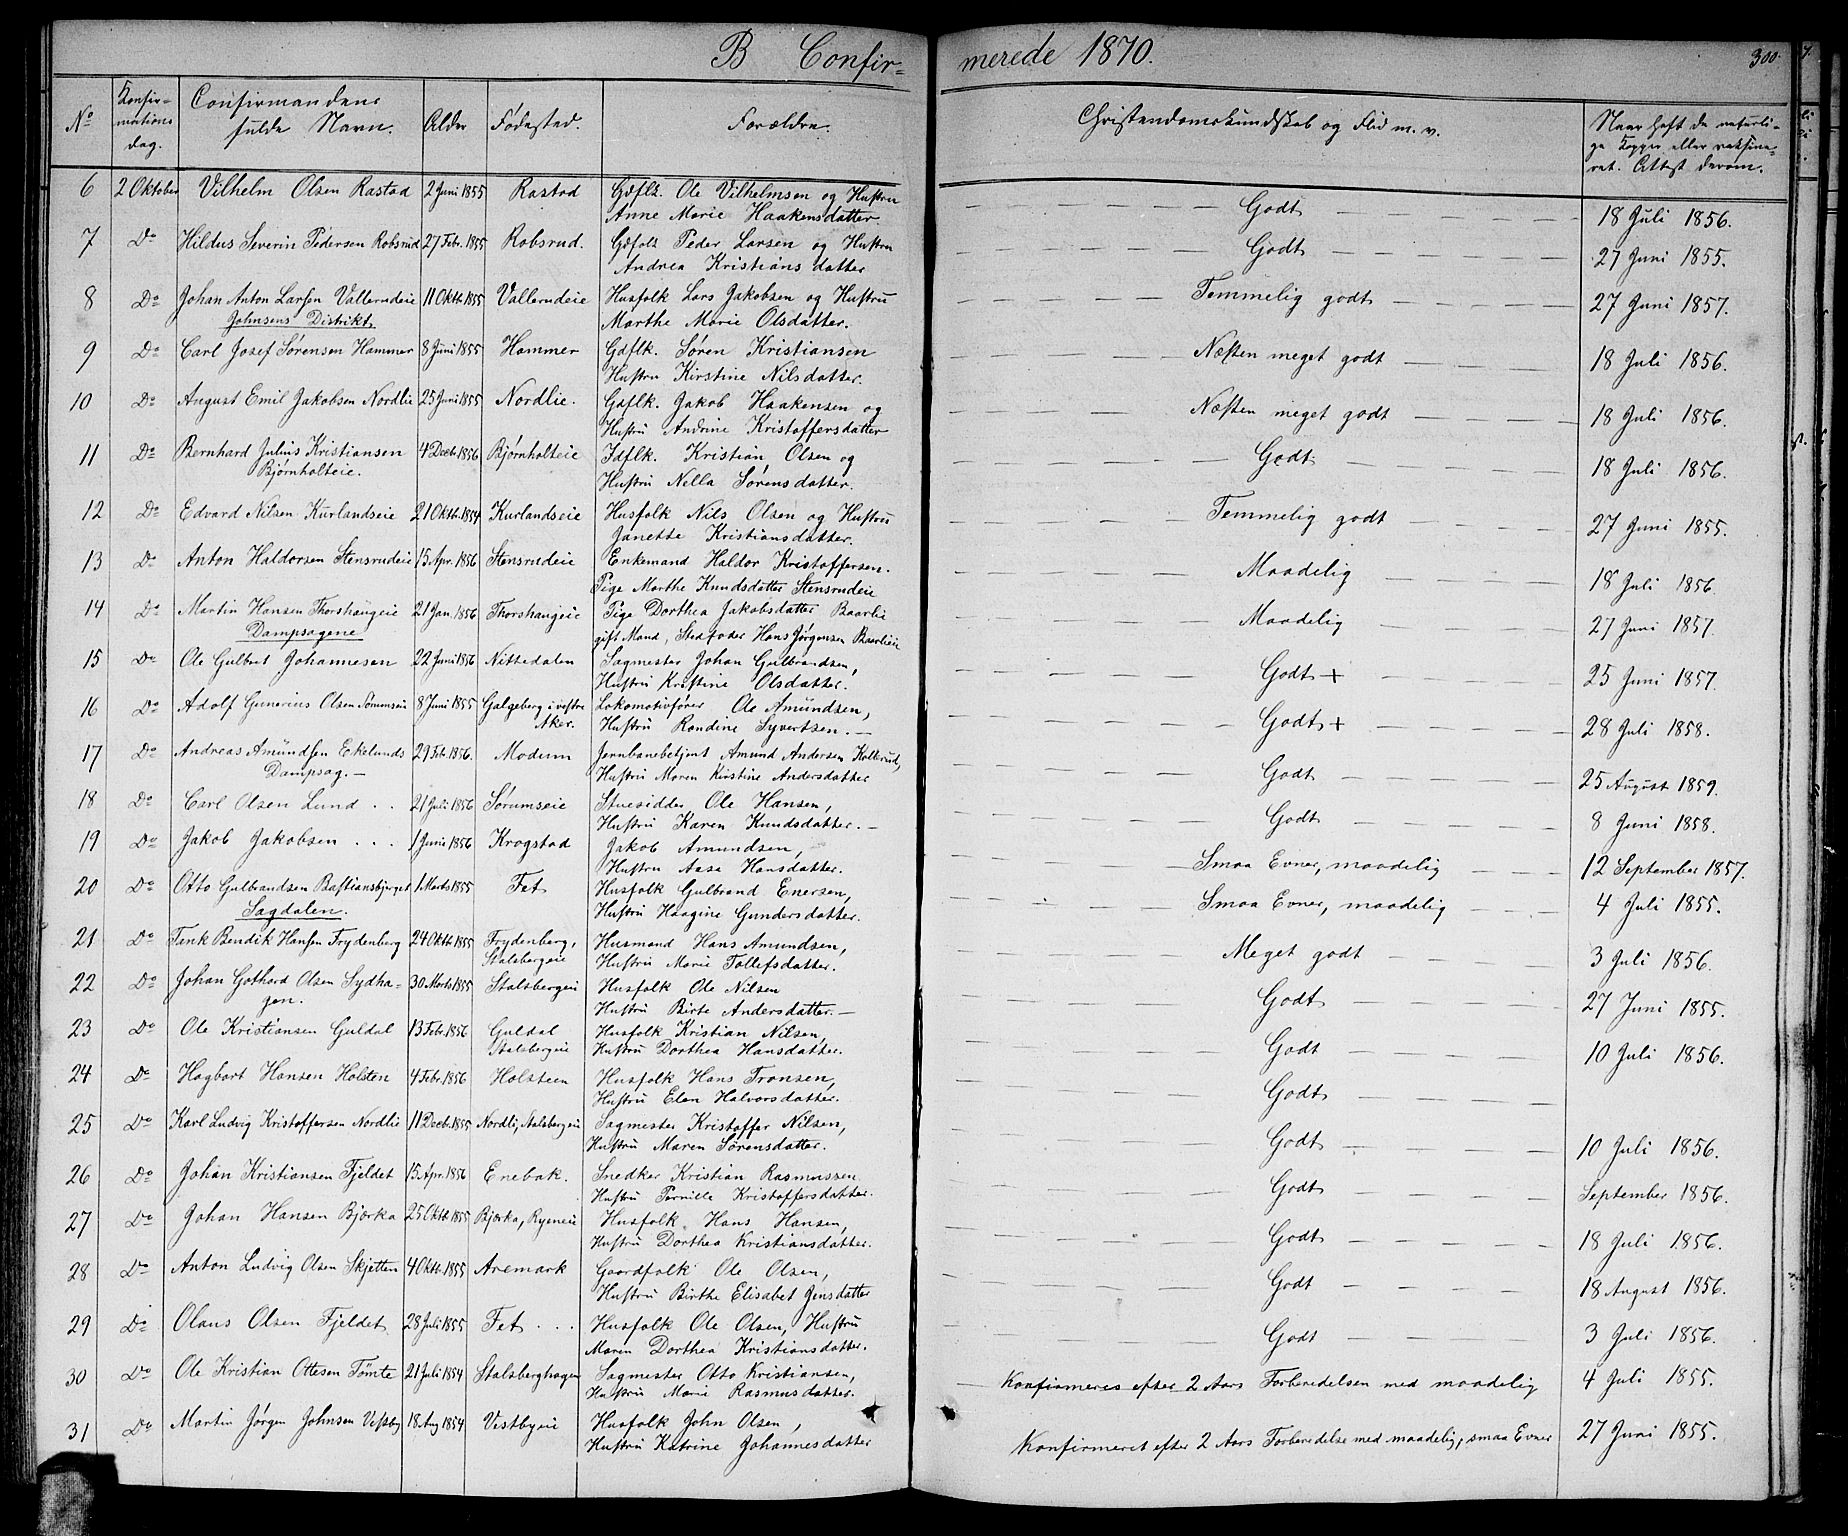 B Confir- merede 1870. 300.
No Konfir- Confirmandens Alder Fødested. Forældre. Christendomskundskab og Flid m. v. Naar haft de naturli-
mations fulde Navn. ge Kopper eller vaksine-
dag. ret. Attest derom.
6 2 Oktober Vilhelm Olsen Rastad 2 Juni 1855 Rastad Gdflk. Ole Vilhelmsen og Hustru Godt 18 Juli 1856.
Anne Marie Haakensdatter
7 Do Hildus Severin Pedersen Robsrud 27 Febr. 1855 Robsrud. Gdfolk Peder Larsen og Hustru Godt 27 Juni 1855.
Andrea Kristians datter
8 Do Johan Anton Larsen Vallerudeie 11 Oktb 1855 Vallerudeie Husfolk Lars Jakobsen og Hustru Temmelig godt 27 Juni 1857.
Johnsens Distrikt Marthe Marie Olsdatter.
9 Do Carl Josef Sørensen Hammer 8 Juni 1855 Hammer Gdflk. Søren Kristiansen Næsten meget godt 18 Juli 1856.
Hustru Kirstine Nilsdatter.
10 Do August Emil Jakobsen Nordlie 25 Juni 1855 Nordlie. Gdflk. Jakob Haakensen og Næsten meget godt 18 Juli 1856.
Hustru Andrine Kristoffersdatter
11 Do Bernhard Julius Kristiansen 4 Decb. 1856 Bjørnholteie Idflk. Kristian Olsen og Godt 18 Juli 1856.
Bjørnholteie. Hustru Nella Sørensdatter.
12 Do Edvard Nilsen Kurlandseie 21 Oktb. 1854 Kurlandseie Husfolk Nils Olsen og Hustru Temmelig godt 27 Juni 1855.
Janette Kristiansdatter.
13 Do Anton Haldorsen Stensrudeie 15 Apr. 1856 Stensrudeie Enkemand Haldor Kristoffersen. Maadelig 18 Juli 1856
Pige Marthe Knudsdatter Stensrudeie
14 Do Martin Hansen Thorshaugeie 21 Jan. 1856 Thorshaugeie Pige Dorthea Jakobsdatter Baarlie Maadelig 27 Juni 1857.
Dampsagene gift Mand, Stedfader Hans Jørgensen Baarlieie
15 Do Ole Gulbret Johannesen 22 Juni 1856 Nittedalen Sagmester Johan Gulbrandsen, Godt + 25 Juni 1857.
Hustru Kristine Olsdatter.
16 Do Adolf Gunerius Olsen Sørumseie 8 Juni 1855 Galgeberg i vestre Lokomotivfører Ole Amundsen, Godt + 28 Juli 1858.
Aker. Hustru Randine Syvertsen.
17 Do Andreas Amundsen Eckelunds 29 Feb. 1856. Modum Jernbanebetjent Amund Andersen Kollerud, Godt 25 August 1859.
Dampsag. Hustru Maren Kristine Andersdatter
18 Do Carl Olsen Lund . . 21 Juli 1856 Sørumseie Stuesidder, Ole Hansen, Godt 8 Juni 1858.
Hustru Karen Knudsdatter.
19 Do Jakob Jakobsen . . . 1 Juni 1856 Krogstad Jakob Amundsen, Smaa Evner, maadelig 12 September 1857.
Hustru Aasa Hansdatter.
20 Do Otto Gulbrandsen Bastiansbjerget 1 Marts 1855 Fet Husfolk Gulbrand Enersen, Smaa Evner, maadelig 4 Juli 1855.
Sagdalen. Hustru Haagine Gundersdatter.
21 Do Tenk Bendik Hansen Frydenberg 24 Oktb 1855 Frydenberg, Husmand Hans Amundsen, Meget godt 3 Juli 1856.
Stalsbergeie Hustru Marie Tollefsdatter.
22 Do Johan Gothard Olsen Sydha- 30 Marts 1855 Stalsbergeie Husfolk Ole Nilsen Godt 27 Juni 1855.
gen. Hustru Birte Andersdatter.
23 Do Ole Kristiansen Guldal 13 Febr. 1856 Guldal Husfolk Kristian Nilsen, Godt 10 Juli 1856.
Stalsbergeie Hustru Dorthea Hansdatter.
24 Do Hagbart Hansen Holsten 4 Febr. 1856 Holsteen Husfolk Hans Tronsen, Godt
Hustru Elen Halvorsdatter.
25 Do Karl Ludvig Kristoffersen Nordlie 11 Decb. 1855 Nordli, Stalsbergeie Sagmester Kristoffer Nilsen, Godt 10 Juli 1856.
Hustru Maren Sørensdatter.
26 Do Johan Kristiansen Fjeldet 15 Apr. 1856 Enebak. Snedker Kristian Rasmussen Godt September 1856.
Hustru Pernille Kristoffersdatter.
27 Do Johan Hansen Bjørka 25 Oktb 1855 Bjørka, Ryeneie Husfolk Hans Hansen, Godt 18 Juli 1856.
Hustru Dorthea Kristiansdatter.
28 Do Anton Ludvig Olsen Skjetten 4 Oktb. 1855 Aremark Gaardfolk Ole Olsen, Godt 18 August 1856.
Hustru Birthe Elisabet Jensdatter
29 Do Olaus Olsen Fjeldet 28 Juli 1855 Fet . . . Husfolk Ole Olsen, Hustru Godt 3 Juli 1856.
Maren Dorthea Kristiansdatter.
30 Do Ole Kristian Ottesen Tømte 21 Juli 1854 Stalsberghagen Sagmester Otto Kristiansen, Konfirmeres efter 2 Aars Forberedelsen med maadelig 4 Juli 1855.
Hustru Marie Rasmusdatter.
31 Do Martin Jørgen Johnsen Vestby 18 Aug 1854 Vestbyeie Husfolk John Olsen, Konfirmeret efter 2 Aars Forberedelse med maadelig, smaa Evner 27 Juni 1855.
Hustru Katrine Johannesdatter